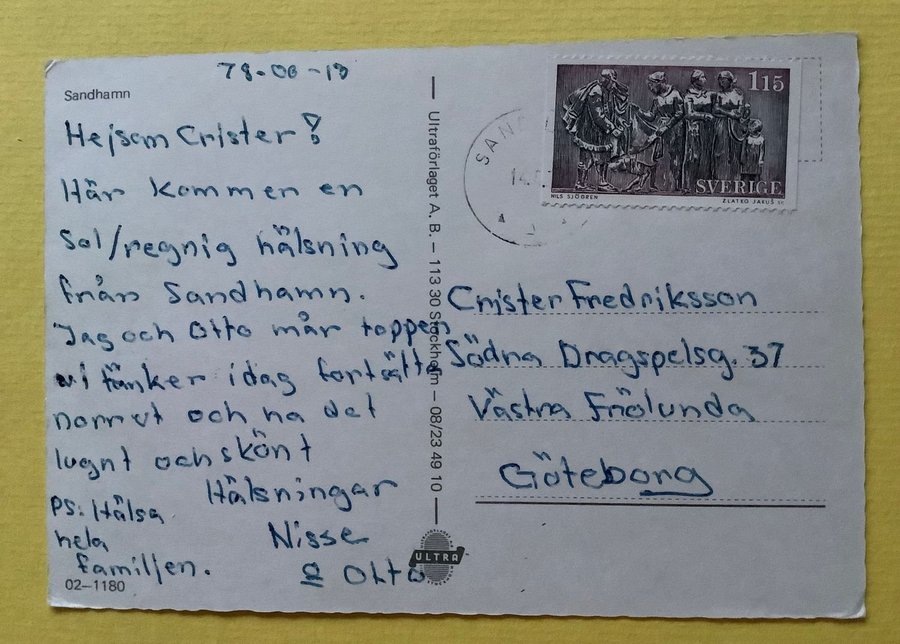 78-06-13
Sandhamn
Hejsan Crister!
Här kommer en
Sol/regnig hälsning
från Sandhamn.
Jag och Otto mår toppen
vi tänker idag fortsätta
norrut och ha det
lugnt och skönt
Hälsningar
Nisse
o Otto
PS: Hälsa
hela
familjen.
02-1180
Ultraförlaget A. B. – 113 30 Stockholm – 08/23 49 10
ULTRA
SAN
14.
1 15
SVERIGE
NILS SJÖGREN
ZLATKO JAKUŠ SC
Crister Fredriksson
Södra Dragspelsg. 37
Västra Frölunda
Göteborg